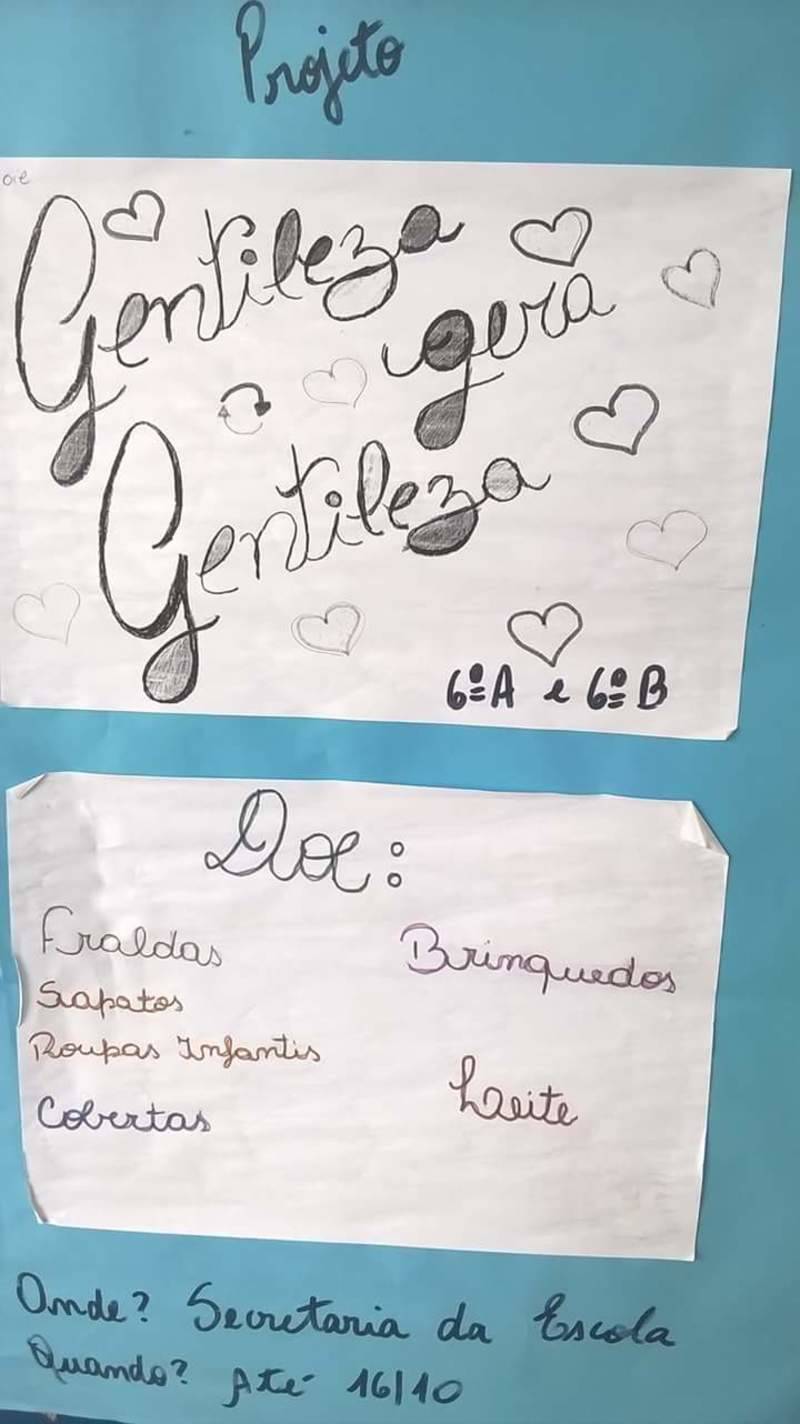 Projeto
oie
Gentileza
gera
Gentileza
6ºA e 6ºB
Doe:
Fraldas
Brinquedos
Sapatos
Roupas Infantis
Leite
Cobertas
Onde? Secretaria da Escola
Quando? Até 16/10